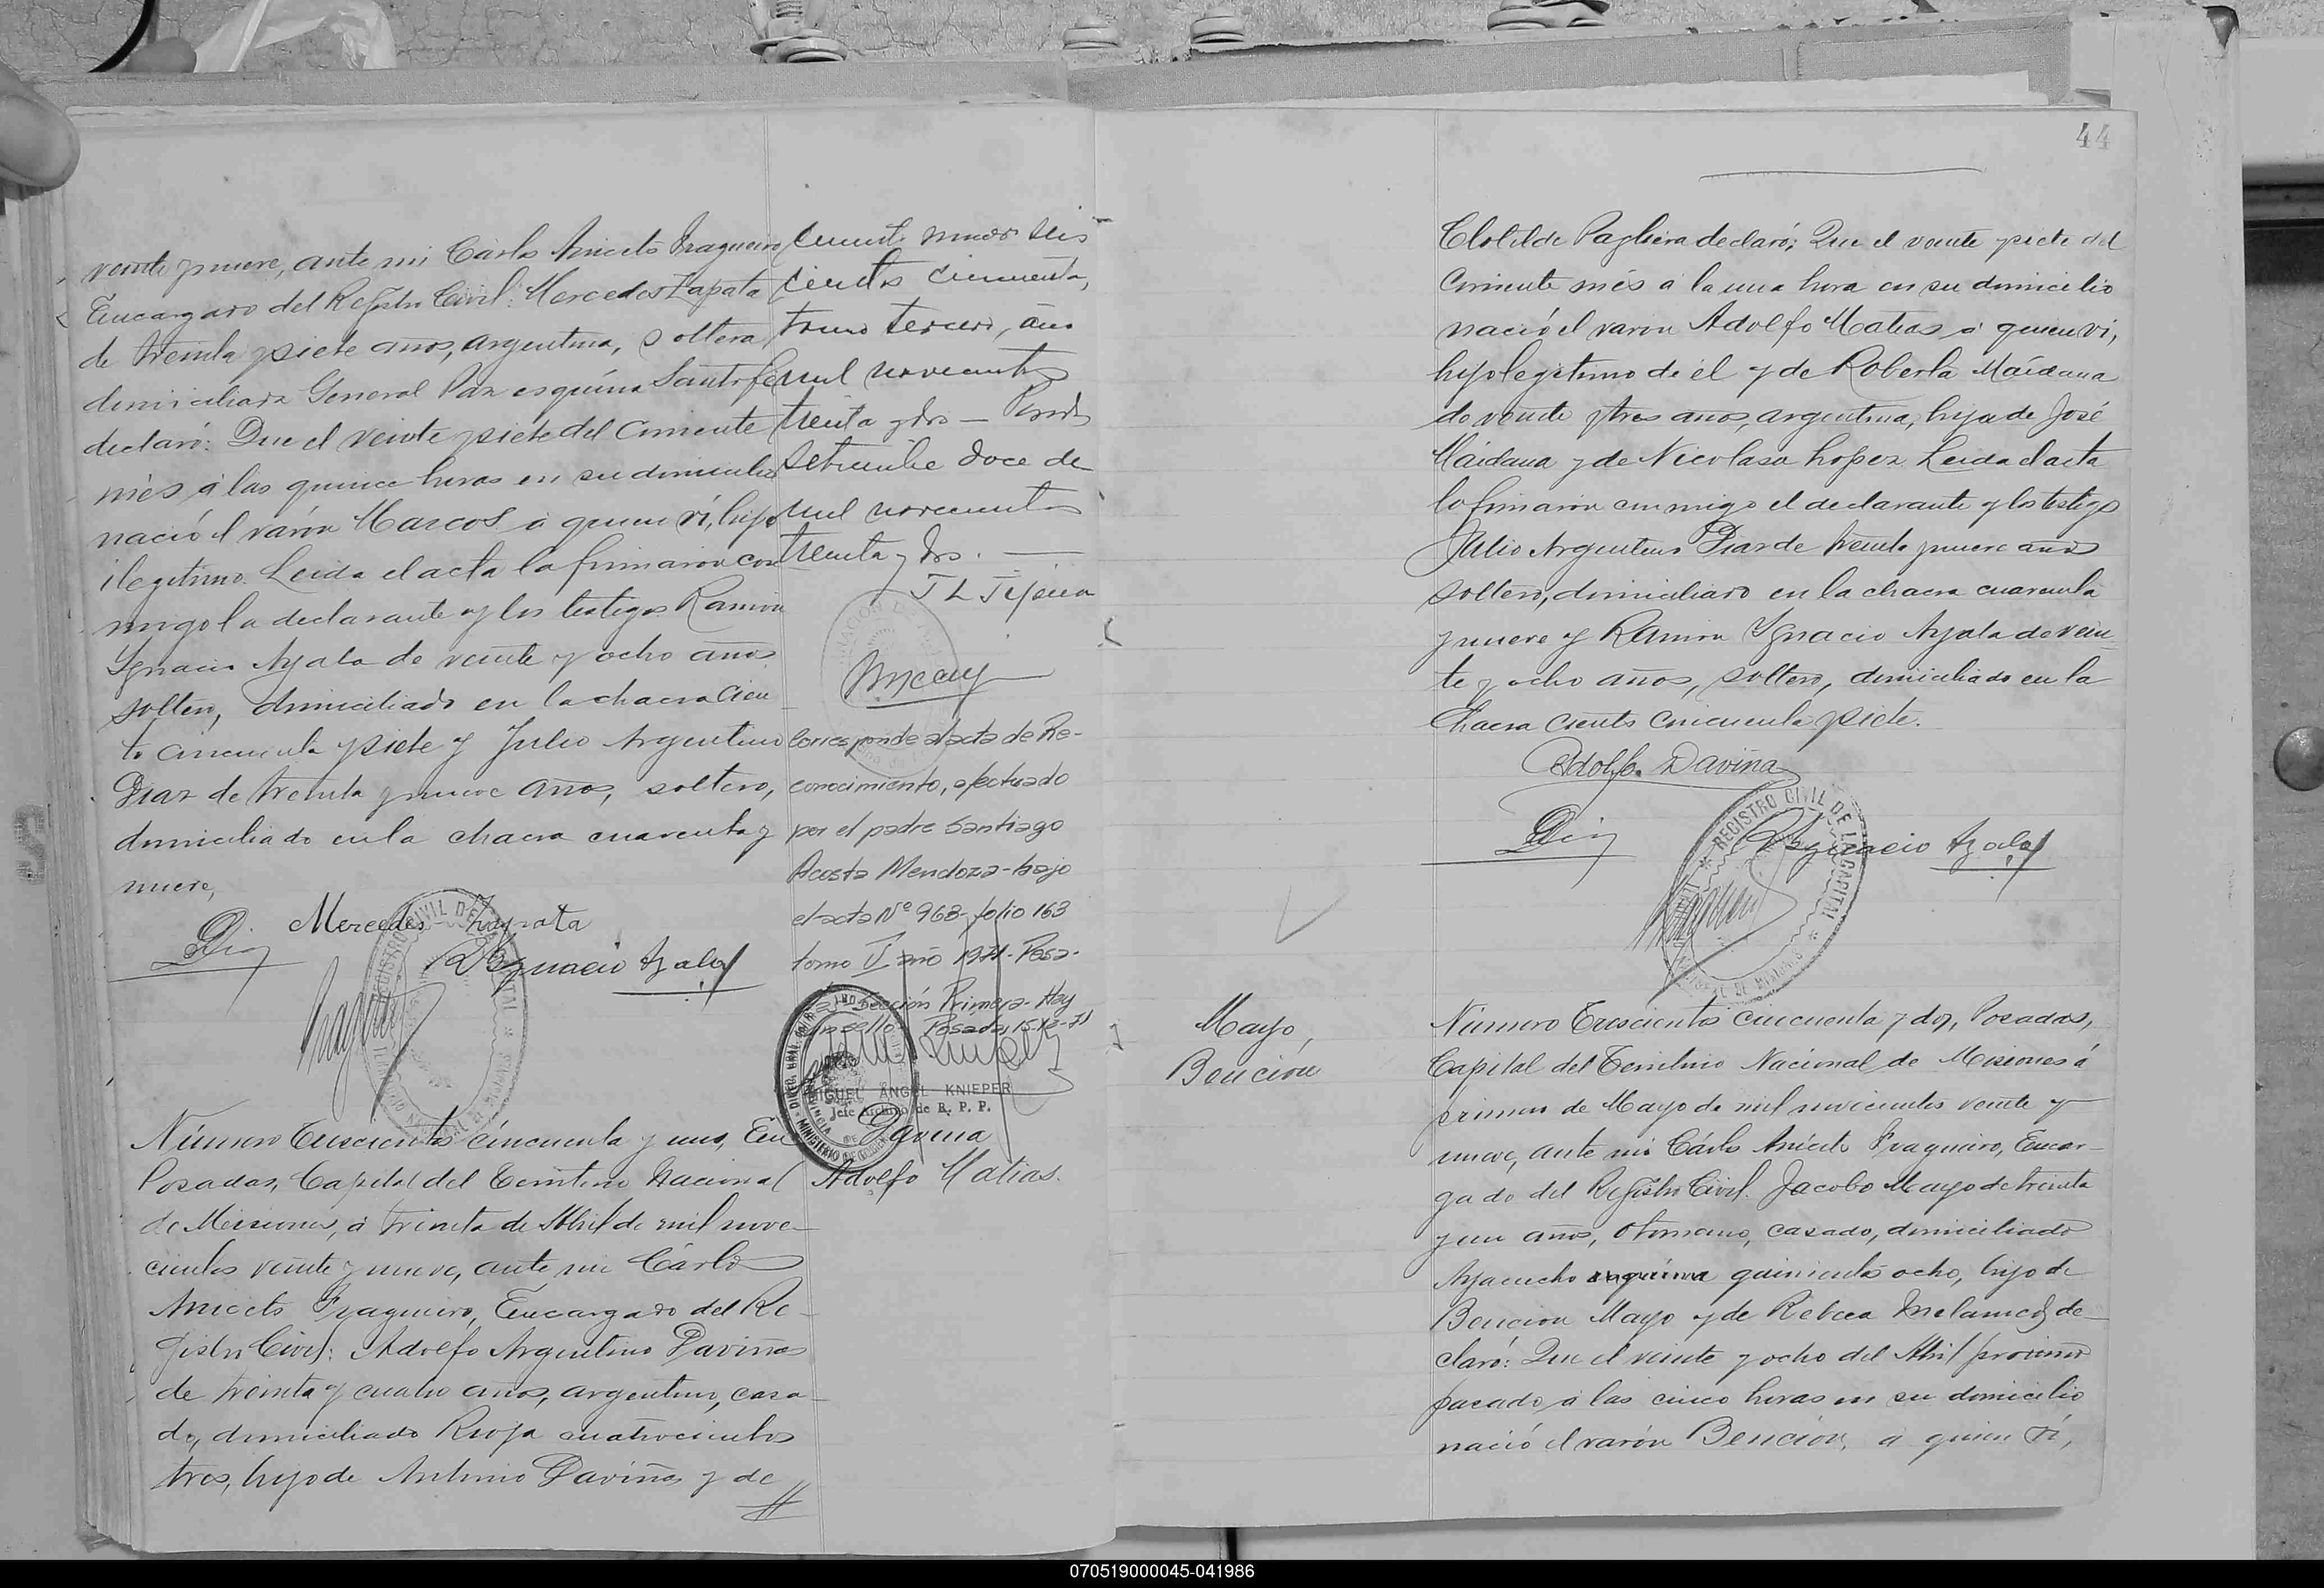 veinte y nueve, ante mi Cárlos Aniceto Fragueiro
Encargado del Registro Civil: Mercedes Zapata
de treinta y siete años, argentina, soltera
domiciliada General Paz esquina Santa fe
declaró: Que el veinte y siete del corriente
més á las quince horas en su domicilio
nació el varón Marcos á quien ví, hijo
ilegitimo. Leida el acta la firmaron con
migo la declarante y los testigos Ramon
Ignacio Ayala de veinte y ocho años
soltero, domiciliado en la chacra cien
to cincuenta y siete y Julio Argentino
Diaz de treinta y nueve años, soltero,
domiciliado en la chacra cuarenta y
nueve,
Mercedes Zapata
Diaz
R Ignacio Ayala
Número Trescientos cincuenta y uno, En
Posadas, Capital del Territorio Nacional
de Misiones, á treinta de Abril de mil nove-
cientos veinte y nueve, ante mi Cárlos
Aniceto Fragueiro, Encargado del Re-
gistro Civil: Adolfo Argentino Daviña
de treinta y cuatro años, argentino, casa-
do, domiciliado Rioja cuatrocientos
tres, hijo de Antonio Daviña y de
//
número seis
cientos cincuenta,
tomo tercero, año
mil novecientos
treinta y dos —
Setiembre doce de
mil novecientos
treinta y dos. —
Corresponde al acta de Re-
conocimiento, efectuado
por el padre Santiago
Acosta Mendoza - bajo
el acta Nº 963 - folio 163
tomo II año 1971 - Posa-
das - Sección Primera - Hay
un sello - Posadas, 15-12-71
MIGUEL ANGEL KNIEPER
Jefe Archivo de R. P. P.
Daviña
Adolfo Matias.
44
Clotilde Pagliera declaró; Que el veinte y siete del
corriente més á la una hora en su domicilio
nació el varon Adolfo Matias á quien ví,
hijo legitimo de él y de Roberta Maidana
de veinte y tres años, argentina, hija de José
Maidana y de Nicolasa Lopez. Leida el acta
la firmaron conmigo el declarante y los testigos
Julio Argentino Diaz de treinta y nueve años
soltero, domiciliado en la chacra cuarenta
y nueve y Ramon Ignacio Ayala de vein-
te y ocho años, soltero, domiciliado en la
chacra ciento cincuenta y siete.
Adolfo Daviña
Diaz
R Ignacio Ayala
REGISTRO CIVIL DE LA CAPITAL
Mayo,
Bención
Número Trescientos cincuenta y dos, Posadas,
Capital del Territorio Nacional de Misiones á
primero de Mayo de mil novecientos veinte y
nueve, ante mi Cárlos Aniceto Fragueiro, Encar-
gado del Registro Civil: Jacobo Mayo de treinta
y un años, Otomano, casado, domiciliado
Ayacucho esquina quinientos ocho, hijo de
Bención Mayo y de Rebeca Melamed, de-
claró: Que el veinte y ocho del Abril próximo
pasado, á las cinco horas en su domicilio
nació el varón Bención, á quien ví,
070519000045-041986